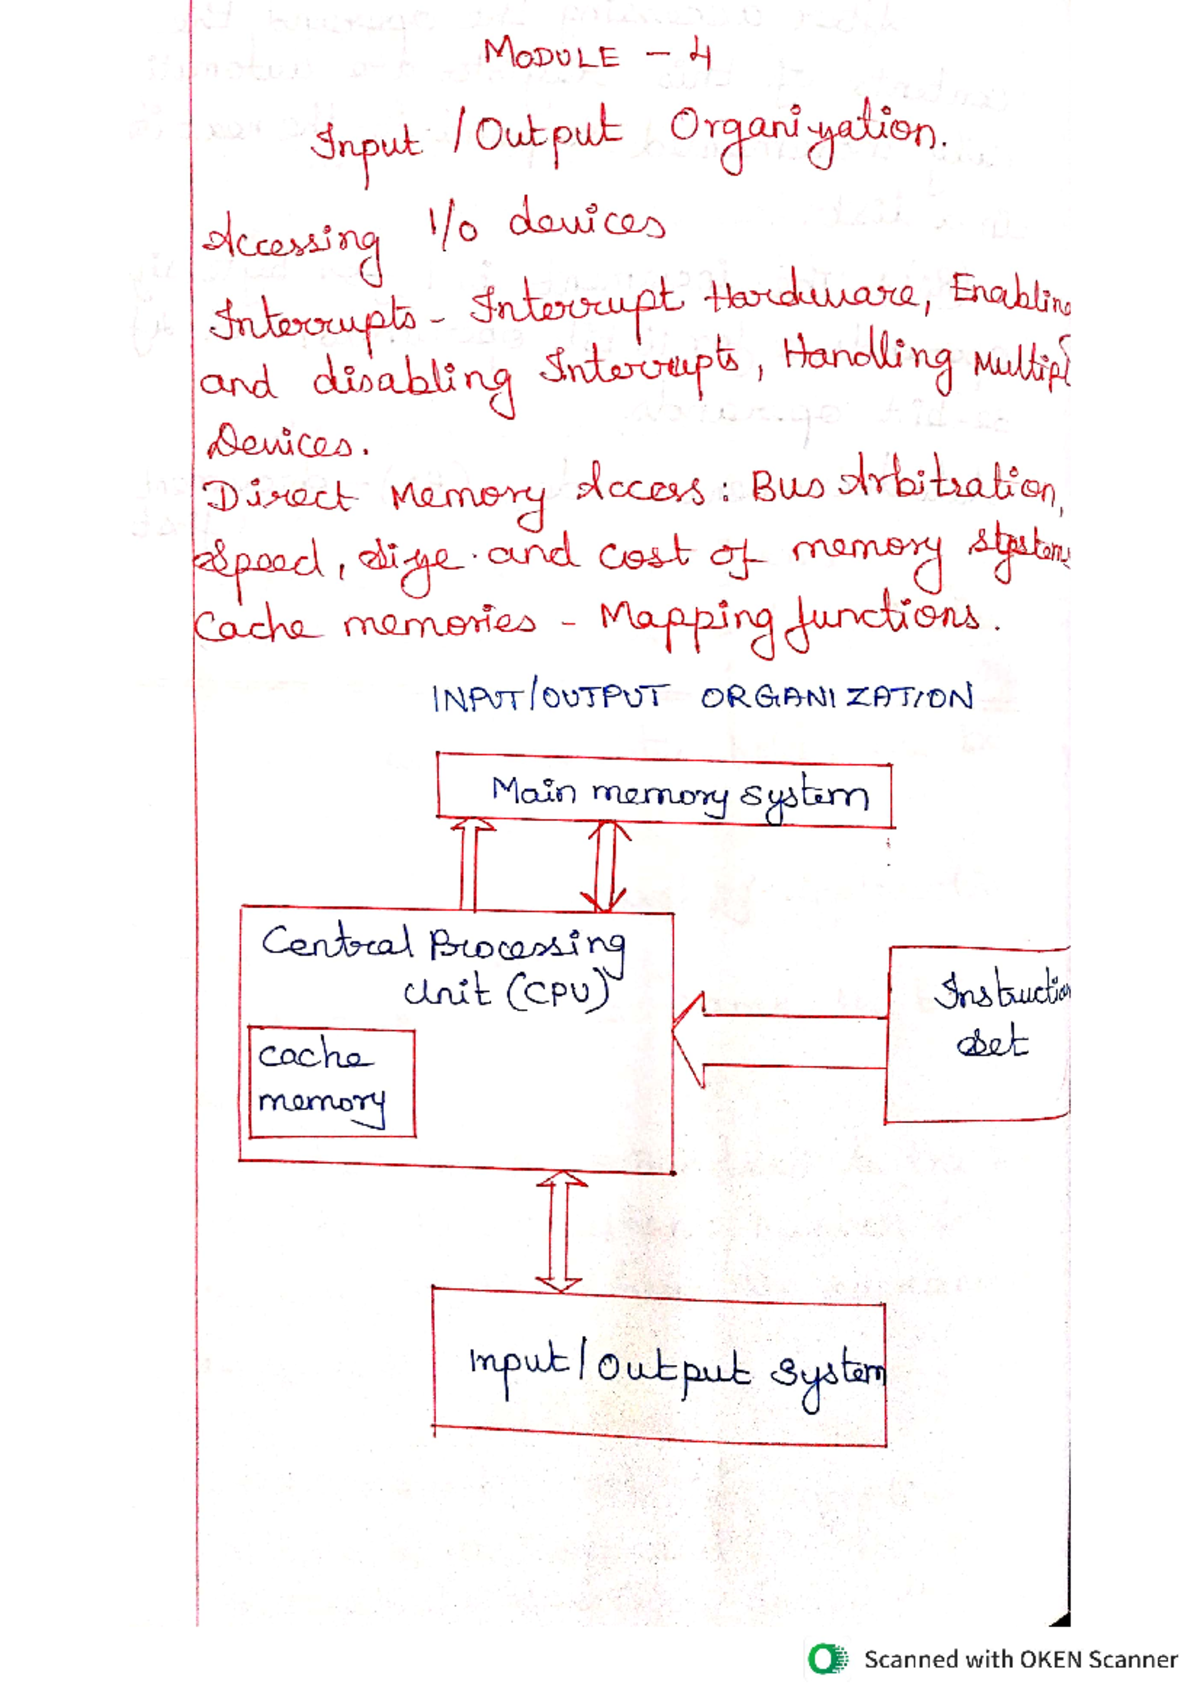 MODULE - 4
Input / Output Organization.
Accessing I/O devices
Interrupts - Interrupt Hardware, Enabling
and disabling Interrupts, Handling Multipl
Devices.
Direct Memory Access: Bus Arbitration,
Speed, size and cost of memory systems
Cache memories - Mapping functions.
INPUT/OUTPUT ORGANIZATION
Main memory system
Central Processing
Unit (CPU)
Cache
memory
Instruction
Set
Input/Output System
Scanned with OKEN Scanner